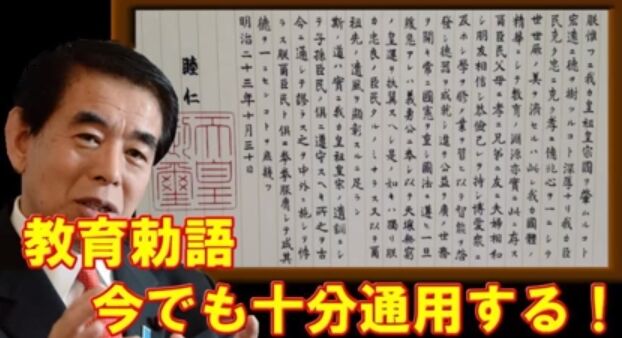 朕惟フニ我カ皇祖皇宗國ヲ肇ムルコト
宏遠ニ德ヲ樹ツルコト深厚ナリ我カ臣
民克ク忠ニ克ク孝ニ億兆心ヲ一ニシテ
世世厥ノ美ヲ濟セルハ此レ我カ國體ノ
精華ニシテ教育ノ淵源亦實ニ此ニ存ス
爾臣民父母ニ孝ニ兄弟ニ友ニ夫婦相和
シ朋友相信シ恭儉己レヲ持シ博愛衆ニ
及ホシ學ヲ修メ業ヲ習ヒ以テ智能ヲ啓
發シ德器ヲ成就シ進テ公益ヲ廣メ世務
ヲ開キ常ニ國憲ヲ重シ國法ニ遵ヒ一旦
緩急アレハ義勇公ニ奉シ以テ天壤無窮
ノ皇運ヲ扶翼スヘシ是ノ如キハ獨リ朕
カ忠良ノ臣民タルノミナラス又以テ爾
祖先ノ遺風ヲ顯彰スルニ足ラン
斯ノ道ハ實ニ我カ皇祖皇宗ノ遺訓ニシ
テ子孫臣民ノ俱ニ遵守スヘキ所之ヲ古
今ニ通シテ謬ラス之ヲ中外ニ施シテ悖
ラス朕爾臣民ト俱ニ拳拳服膺シテ咸其
德ヲ一ニセンコトヲ庶幾フ
明治二十三年十月三十日
睦仁
天皇御璽
教育勅語
今でも十分通用する！